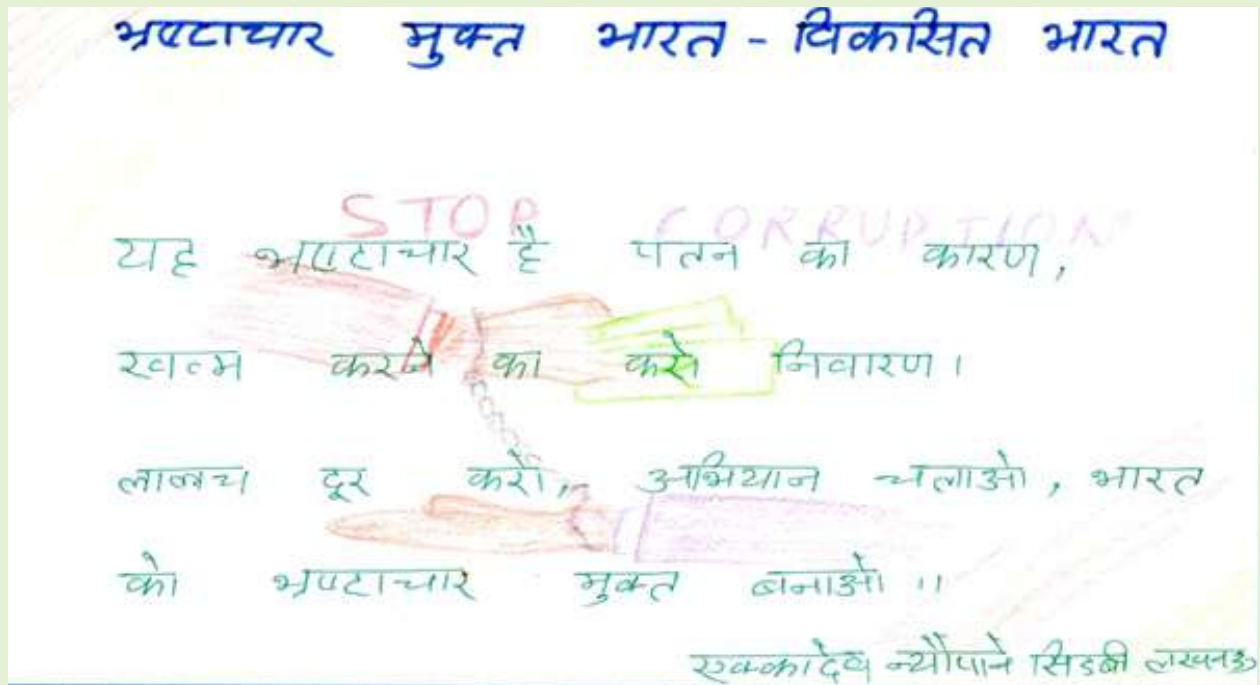 भ्रष्टाचार मुक्त भारत - विकसित भारत
STOP CORRUPTION
यह भ्रष्टाचार है पतन का कारण,
खत्म करने का करो निवारण।
लालच दूर करो, अभियान चलाओ, भारत
को भ्रष्टाचार मुक्त बनाओ।।
न्यौपाने सिडबी लखनऊ